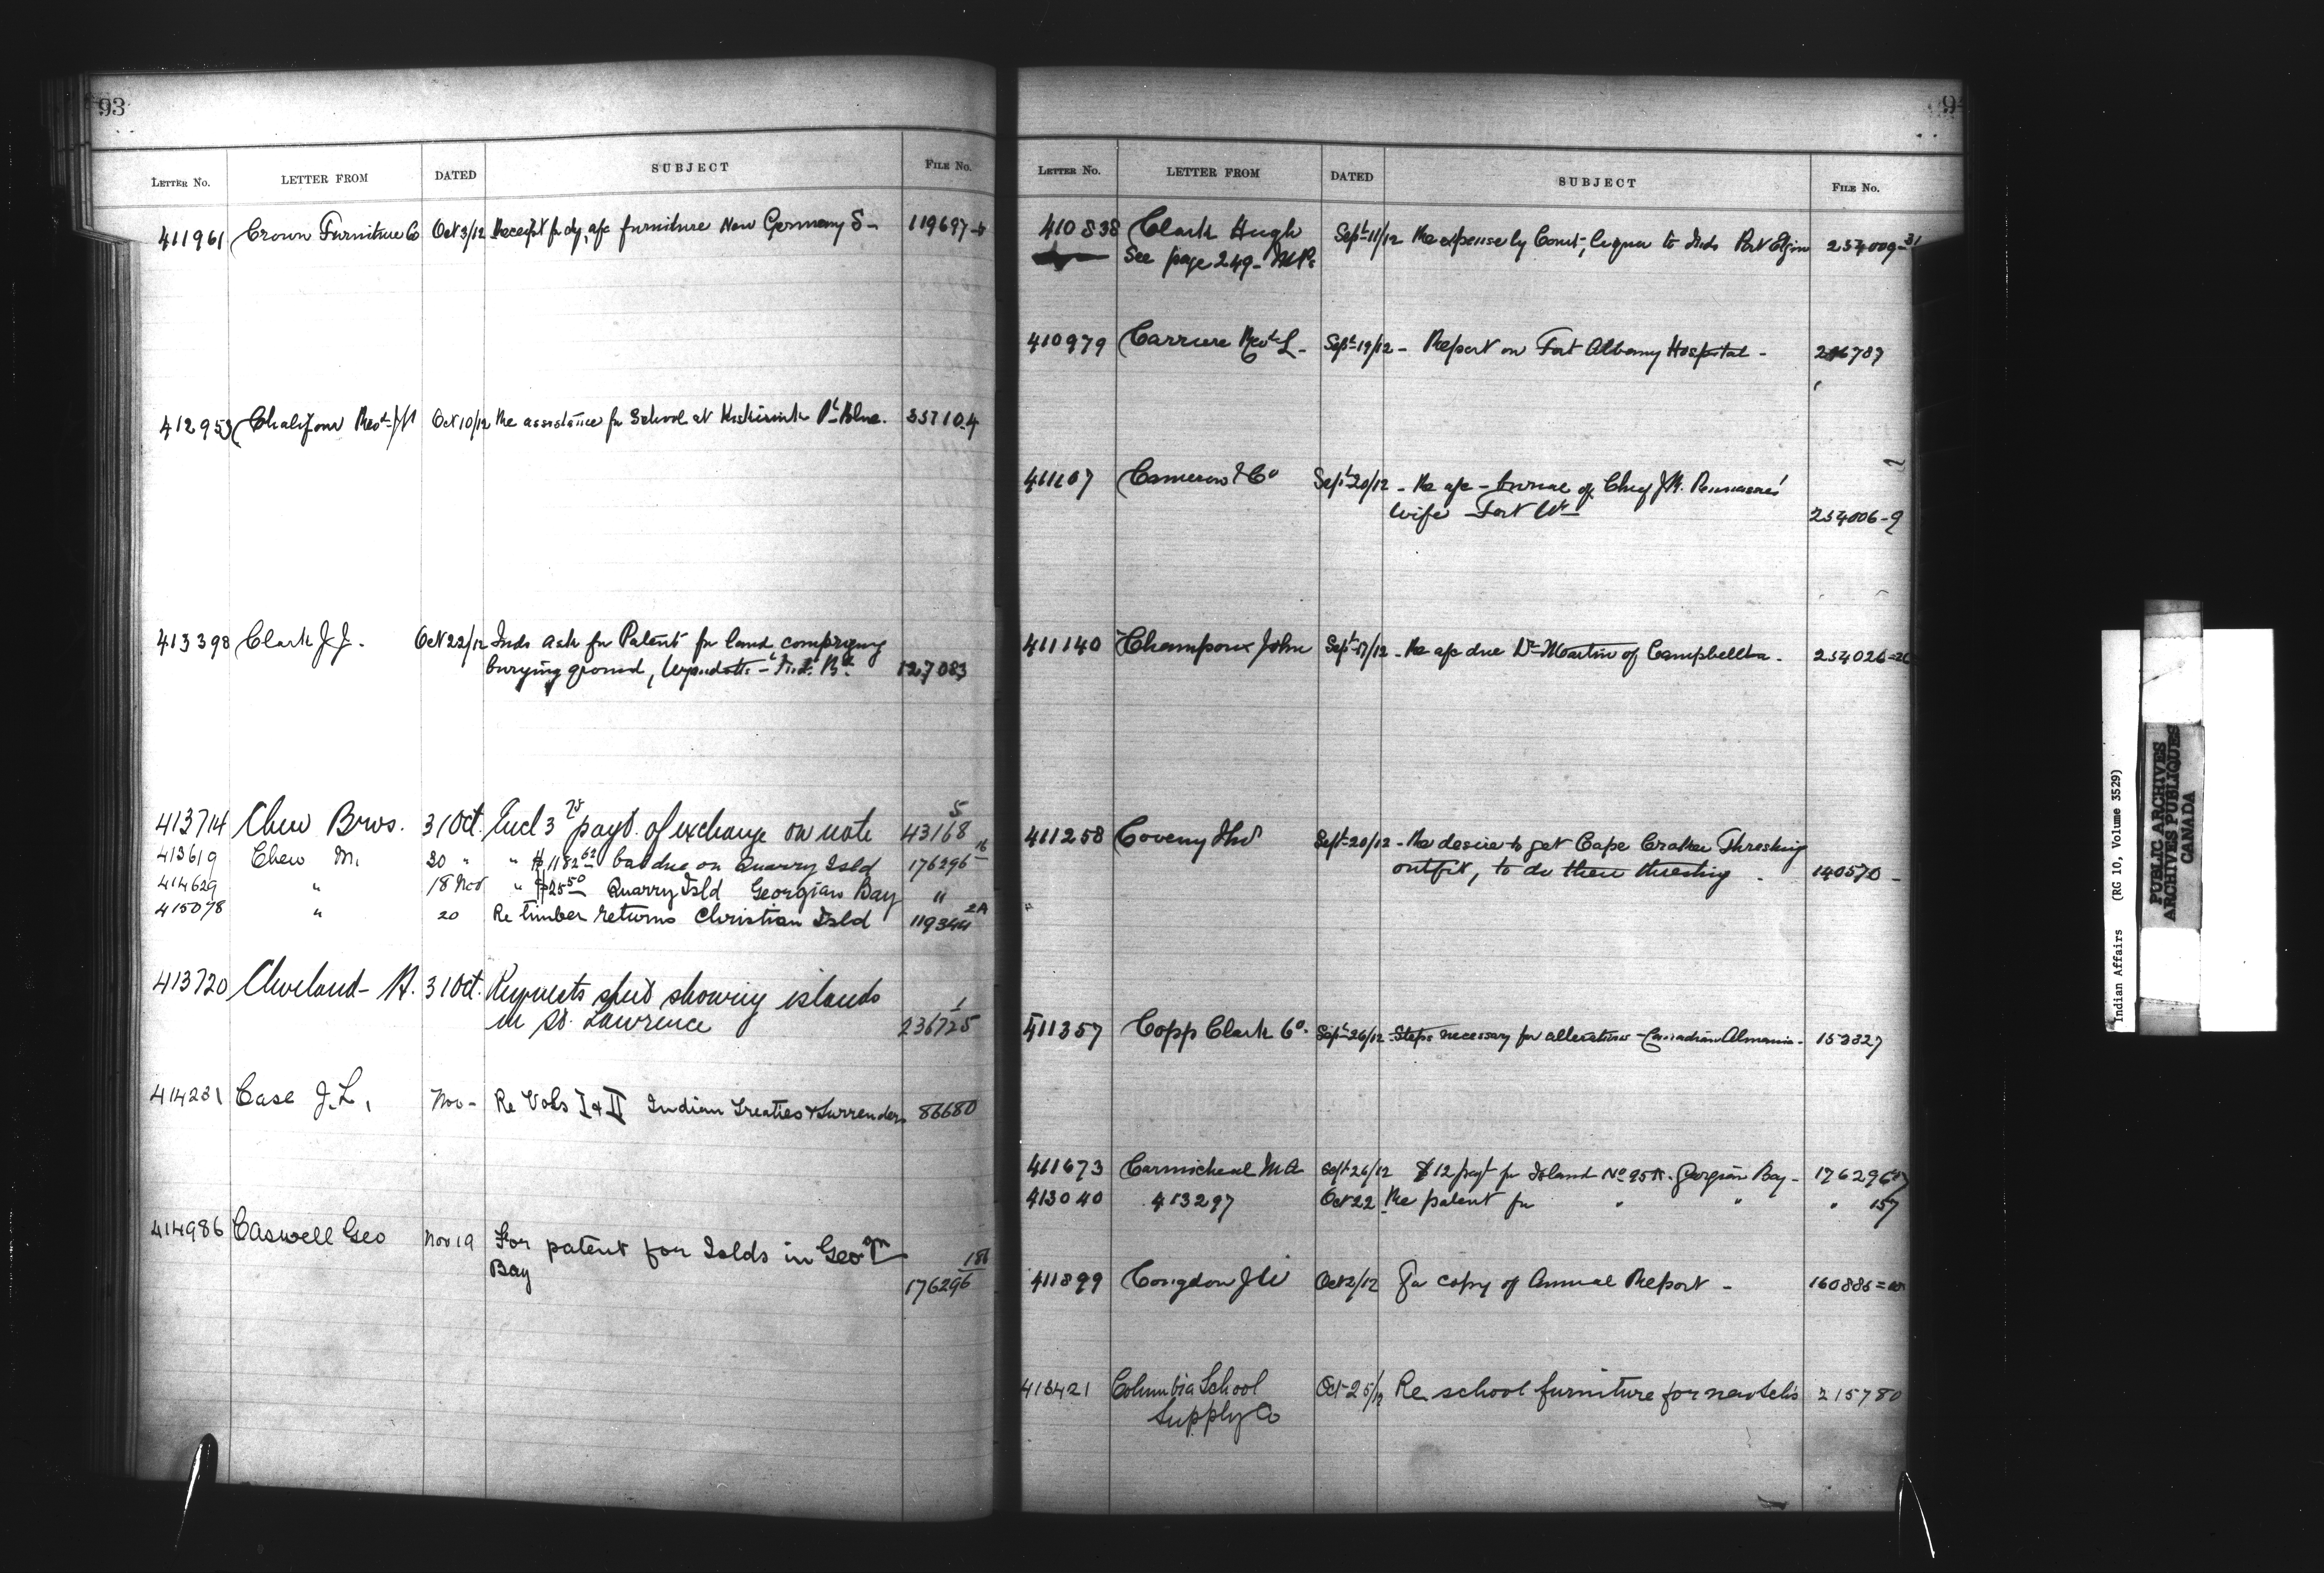 93
LETTER NO. LETTER FROM DATED SUBJECT FILE NO.
411961 Crown Furniture Co Oct 3/12 Receipt for a/c furniture New Germany S- 119697-4
412953 Chalifour Revd Oct 10/12 Re assistance for School at Pt Blue. 35710-4
413398 Clark J.J. Oct 22/12 Inds ask for Patent for land comprising
burying ground, 127083
413714 Chew Bros. 31 Oct. Encl 3 75 payt. of exchange on note 43168 5
413619 Chew M. 30 " " $1182 62 bal due on Quarry Isld 176296 16
414629 " 18 Nov " $25 50 Quarry Isld Georgian Bay "
415078 " 20 Re timber returns Christian Isld 119344 2A
413720 Cleveland - A. 31 Oct. Requests showing islands
in St. Lawrence 236725 1
414231 Case J.L. Nov - Re Vols I & II Indian Treaties & Surrenders 86680
414986 Caswell Geo Nov 19 For patent for Islds in Geogn
Bay 176296 186
94
LETTER NO. LETTER FROM DATED SUBJECT FILE NO.
410838 Clark Hugh Sept 11/12 Re expense by Const, liquor to Inds Port Elgin 254009-31
See page 249- M.P.
410979 Carriere Revd L- Sept 19/12 - Report on Fort Albany Hospital - 216787
411107 Cameron & Co Sept 20/12 - Re a/c - burial of Chief
wife Fort Wm 254006-9
411140 Champoux John Sept 17/12 - Re a/c due Dr Martin of Campbellton. 254026
411258 Coveny Sept 20/12 - Re desire to get Cape Croker Threshing
outfit, to do their threshing. 140570 -
411357 Copp Clark Co. Sept 26/12 - Steps necessary for alterations - Canadian Almanac. 153327
411673 Carmicheal M A Sept 26/12 $12 payt for Island No 95A. Georgian Bay - 176296
413040 413297 Oct 22 Re patent for " " " 157
411899 Congdon J W Oct 2/12 For copy of Annual Report - 160886
413421 Columbia School Oct 25/12 Re school furniture for new schs 215780
Supply Co
Indian Affairs (RG 10, Volume 3529)
PUBLIC ARCHIVES
ARCHIVES PUBLIQUES
CANADA